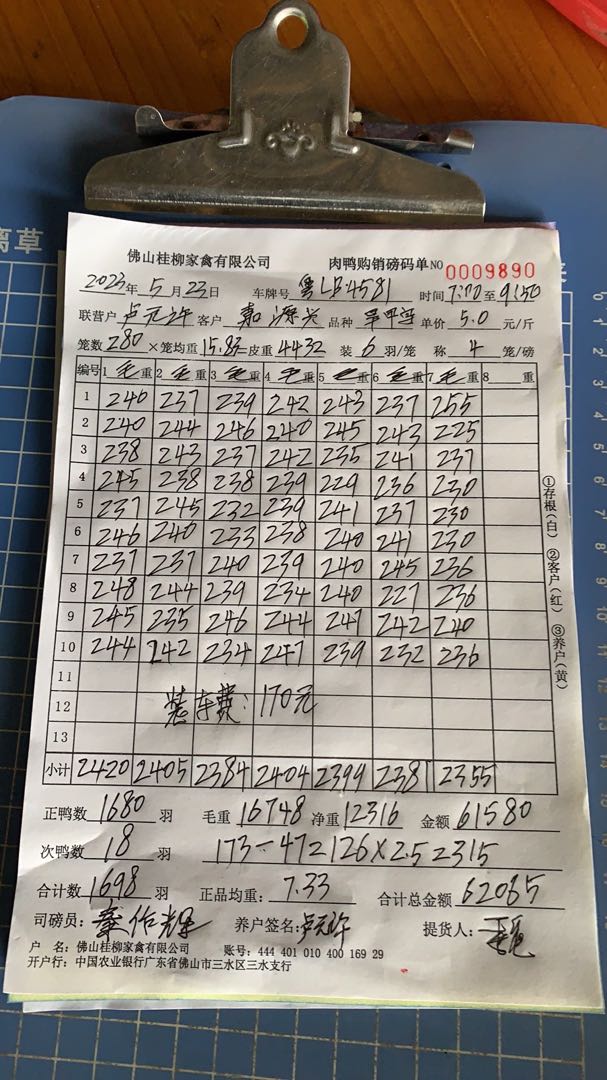 离草
佛山桂柳家禽有限公司 肉鸭购销磅码单 NO 0009890
2023年 5月 23日 车牌号 粤LB4581 时间 7:00至 9:50
联营户 卢元许 客户 品种 单价 5.0 元/斤
笼数 280 ×笼均重 15.83 皮重 4432 装 6 羽/笼 称 4 笼/磅
编号 1 毛重 2 毛重 3 毛重 4 毛重 5 毛重 6 毛重 7 毛重 8 重
1 240 237 239 242 243 237 255
2 240 244 246 240 245 243 225
3 238 243 237 242 235 241 237
4 245 238 238 239 229 236 230
5 237 245 232 239 241 237 230
6 246 240 233 238 240 241 230
7 237 237 240 239 240 245 236
8 248 244 239 234 240 227 236
9 245 235 246 244 247 242 240
10 244 242 234 247 239 232 236
11
12 装车费:170元
13
小计 2420 2405 2384 2404 2399 2381 2355
正鸭数 1680 羽 毛重 16748 净重 12316 金额 61580
次鸭数 18 羽 173-47=126×2.5=315
合计数 1698 羽 正品均重: 7.33 合计总金额 62065
司磅员: 养户签名: 卢元许 提货人:
户 名: 佛山桂柳家禽有限公司 账号: 444 401 010 400 169 29
开户行: 中国农业银行广东省佛山市三水区三水支行
①存根(白) ②客户(红) ③养户(黄)